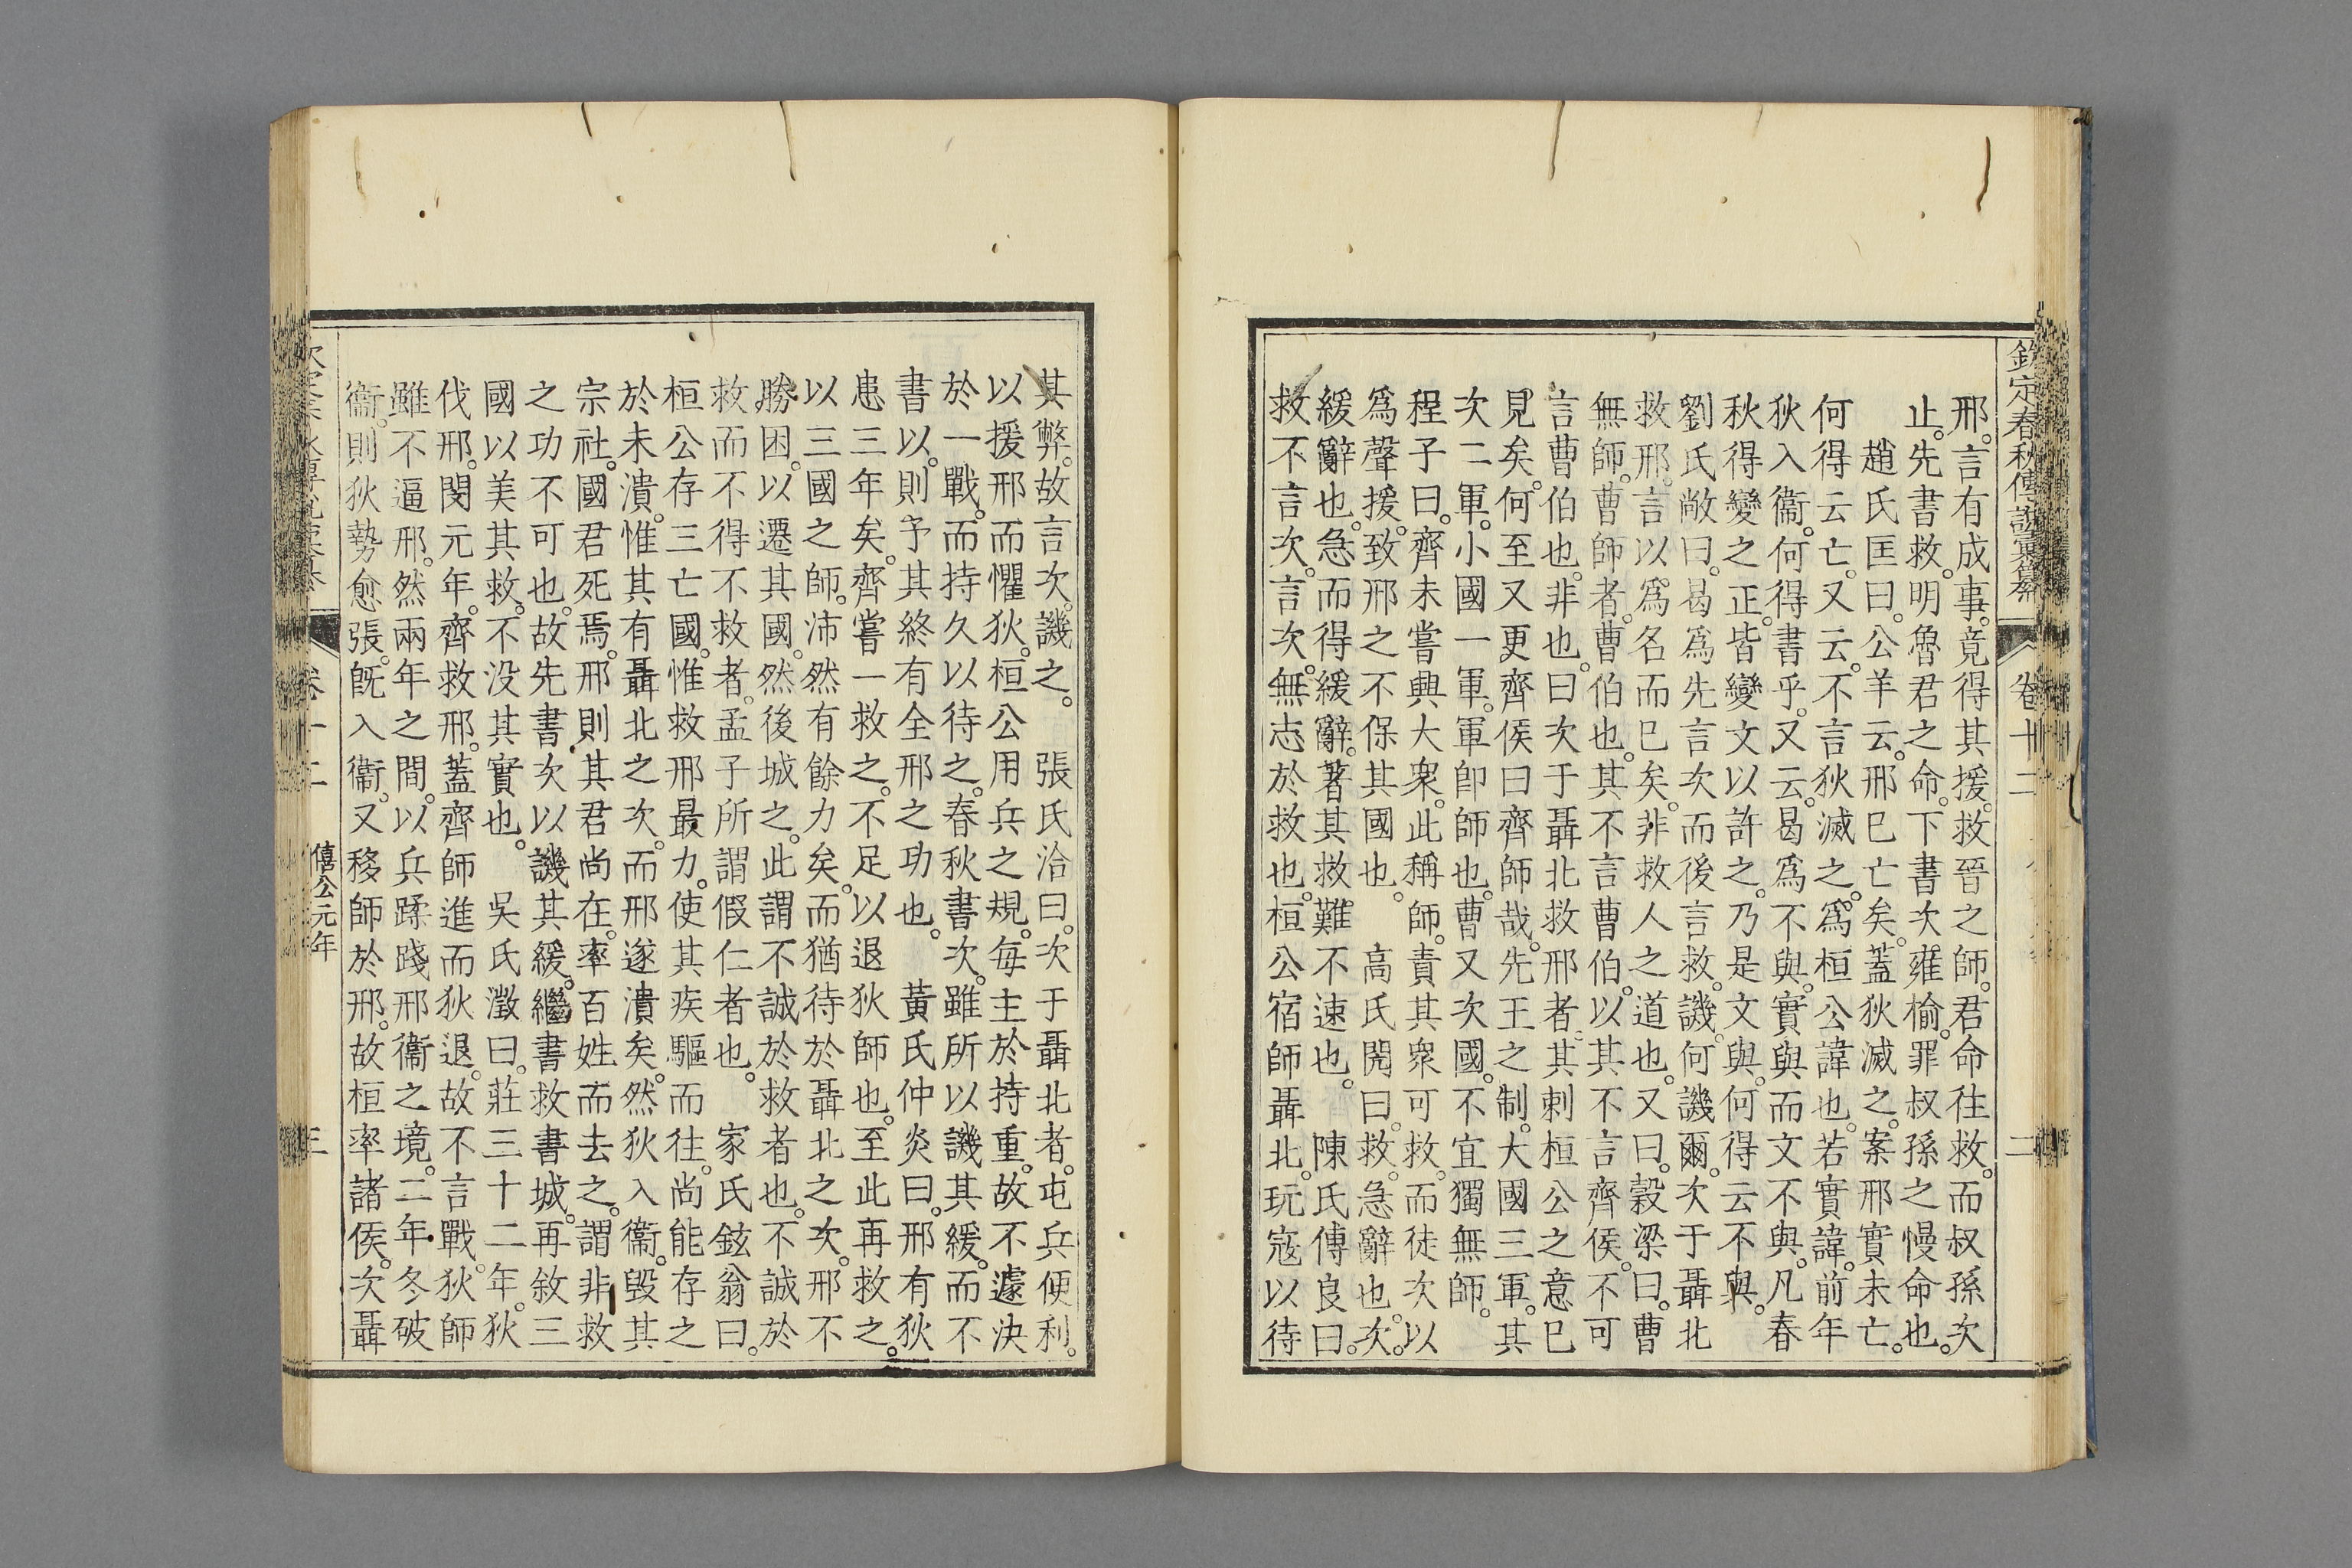 欽定春秋傳說彙纂 卷十二 二
邢。言有成事。竟得其援。救晉之師。君命往救。而叔孫次
止。先書救。明魯君之命。下書次雍榆。罪叔孫之慢命也。
趙氏匡曰。公羊云。邢巳亡矣。蓋狄滅之。案邢實未亡。
何得云亡。又云。不言狄滅之。為桓公諱也。若實諱。前年
狄入衞。何得書乎。又云。曷為不與。實與而文不與。凡春
秋得變之正。皆變文以許之。乃是文與。何得云不與。
劉氏敞曰。曷為先言次而後言救。譏。何譏爾。次于聶北
救邢。言以為名而巳矣。非救人之道也。又曰。穀梁曰。曹
無師。曹師者。曹伯也。其不言曹伯。以其不言齊侯。不可
言曹伯也。非也。曰次于聶北救邢者。其刺桓公之意巳
見矣。何至又更齊侯曰齊師哉。先王之制。大國三軍。其
次二軍。小國一軍。軍卽師也。曹又次國。不宜獨無師。
程子曰。齊未嘗興大衆。此稱師。責其衆可救。而徒次以
為聲援。致邢之不保其國也。 高氏閌曰。救。急辭也。次。
緩辭也。急而得緩辭。著其救難不速也。 陳氏傅良曰。
救不言次。言次。無志於救也。桓公宿師聶北。玩寇以待
其弊。故言次。譏之。 張氏洽曰。次于聶北者。屯兵便利。
以援邢而懼狄。桓公用兵之規。每主於持重。故不遽決
於一戰。而持久以待之。春秋書次。雖所以譏其緩。而不
書以。則予其終有全邢之功也。 黃氏仲炎曰。邢有狄
患三年矣。齊嘗一救之。不足以退狄師也。至此再救之。
以三國之師。沛然有餘力矣。而猶待於聶北之次。邢不
勝困。以遷其國。然後城之。此謂不誠於救者也。不誠於
救而不得不救者。孟子所謂假仁者也。 家氏鉉翁曰。
桓公存三亡國。惟救邢最力。使其疾驅而往。尚能存之
於未潰。惟其有聶北之次。而邢遂潰矣。然狄入衞。毀其
宗社。國君死焉。邢則其君尚在。率百姓而去之。謂非救
之功不可也。故先書次以譏其緩。繼書救書城。再敘三
國以美其救。不沒其實也。 吳氏澂曰。莊三十二年。狄
伐邢。閔元年。齊救邢。蓋齊師進而狄退。故不言戰。狄師
雖不逼邢。然兩年之間。以兵蹂踐邢衞之境。二年冬破
衞。則狄勢愈張。旣入衞。又移師於邢。故桓率諸侯。次聶
卷十二 僖公元年 三